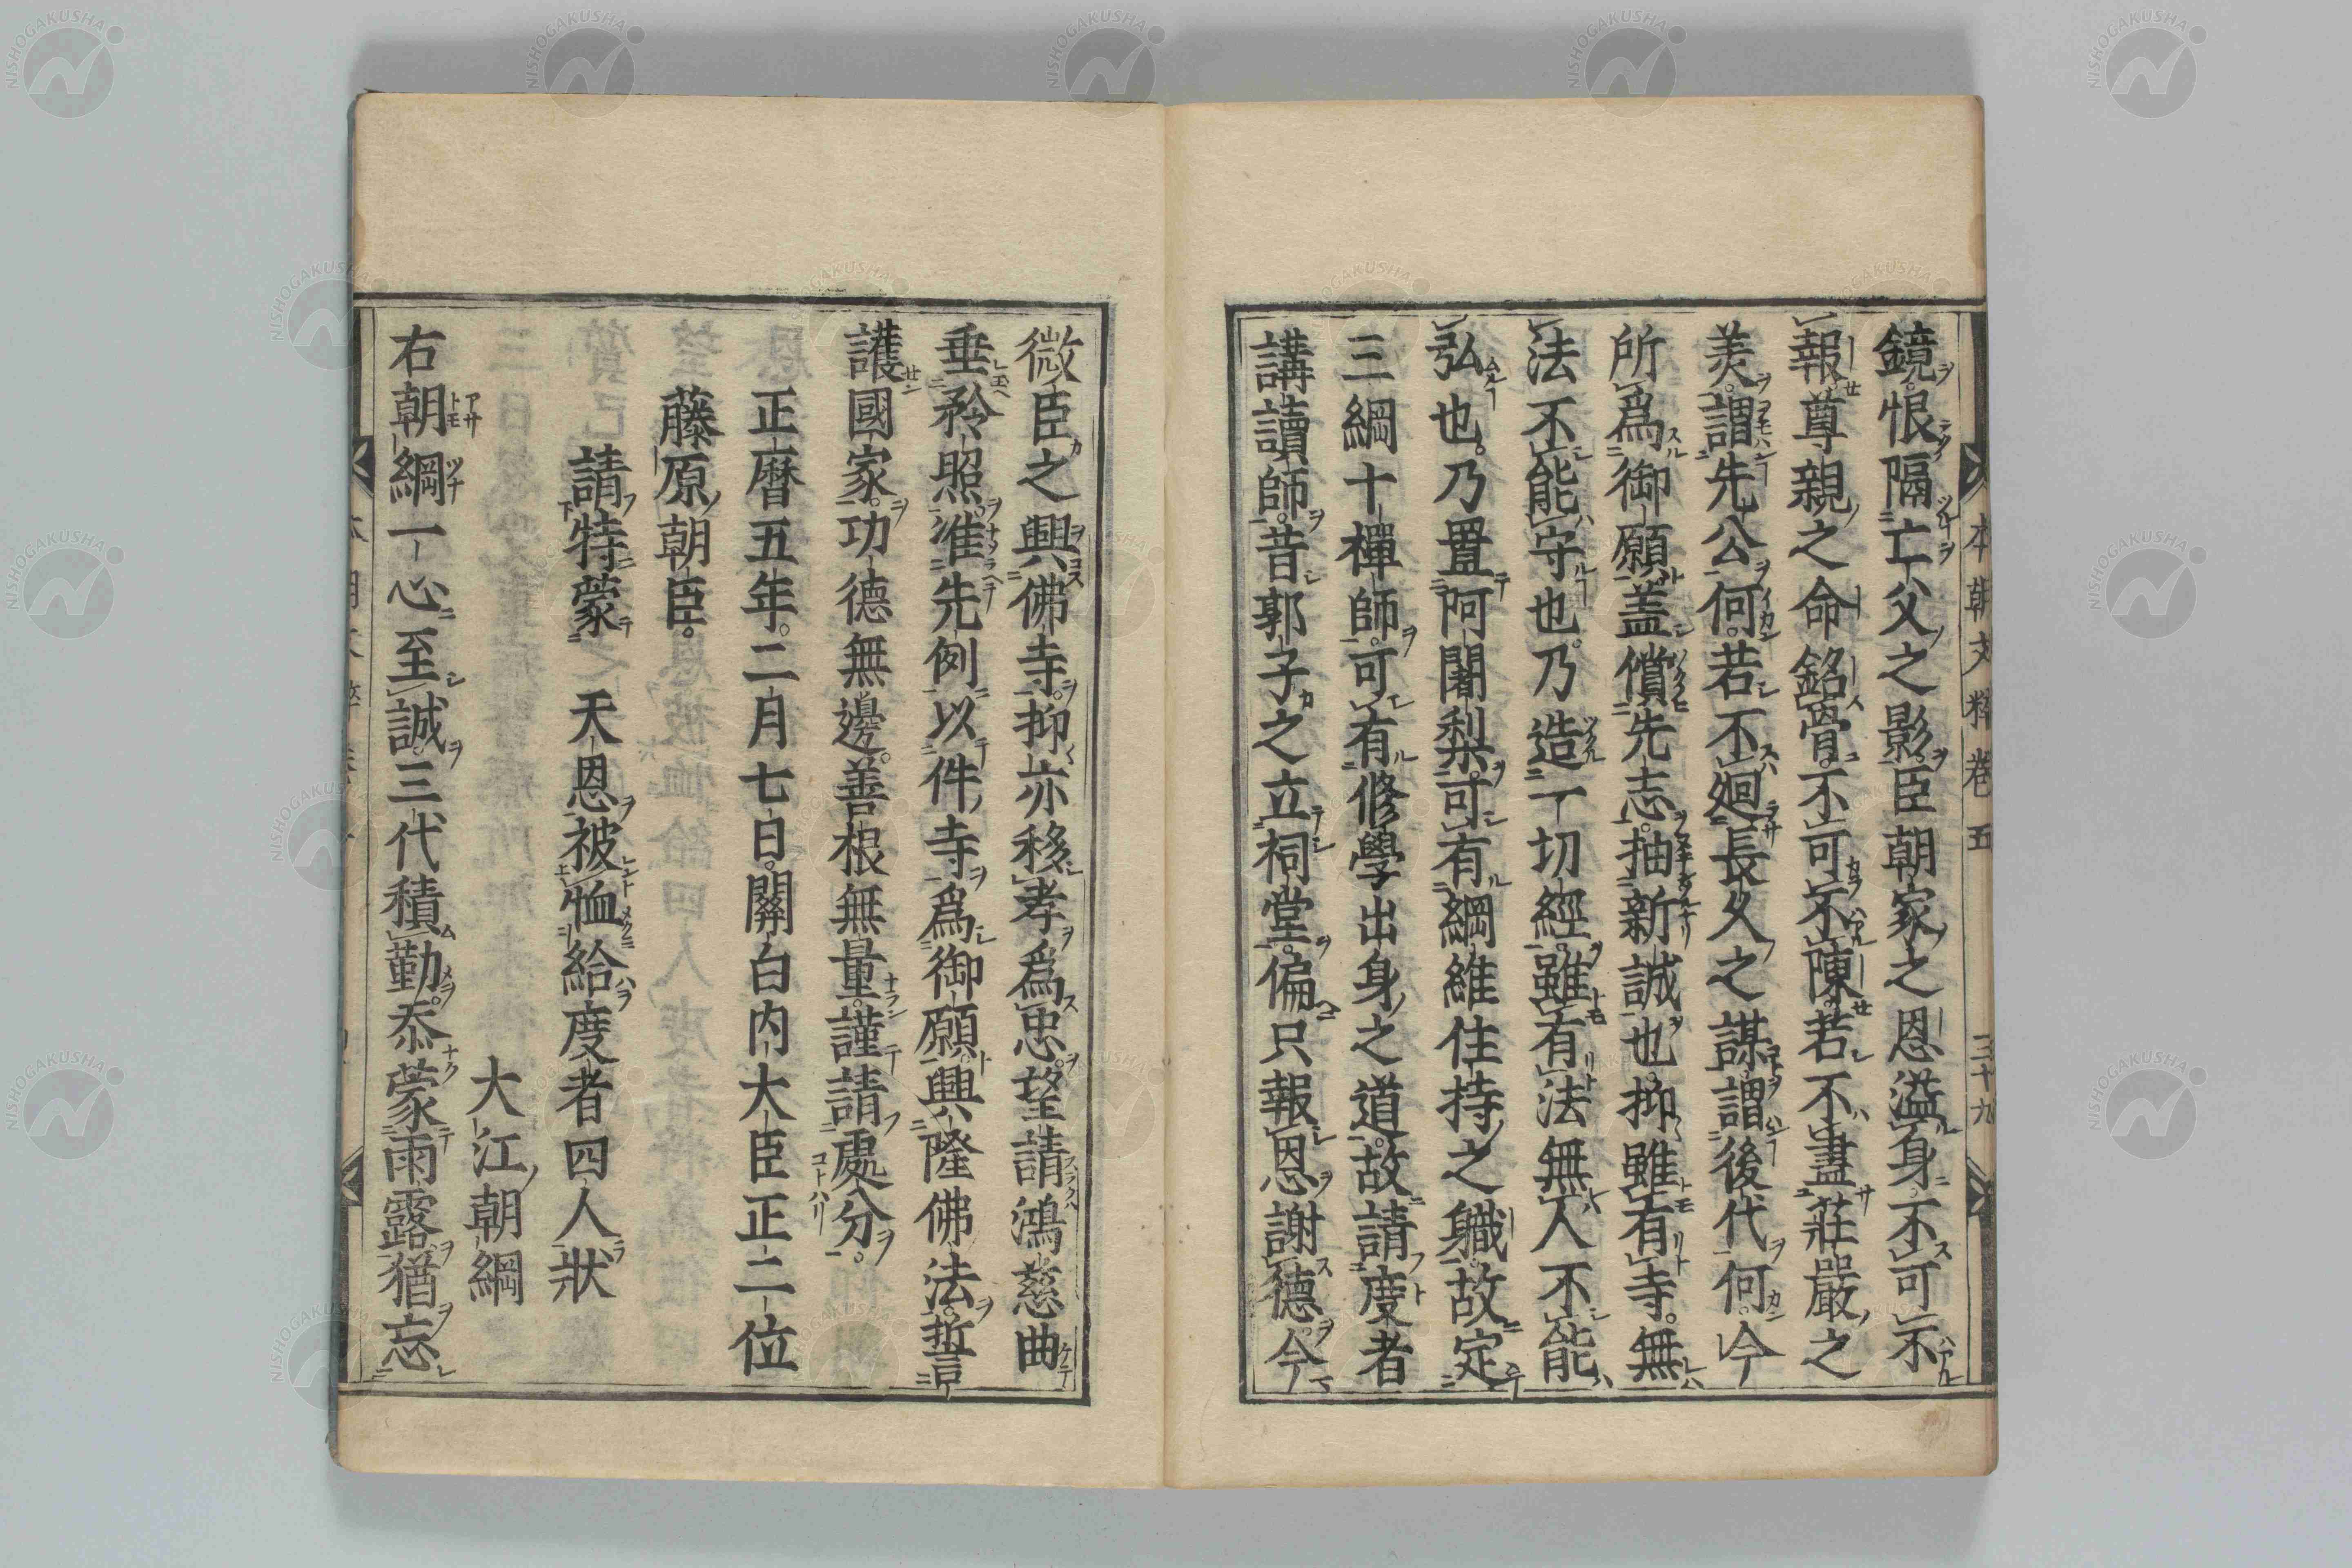 鏡恨隔亡父之影臣朝家之恩溢身不可不
報尊親之命銘骨不可不陳若不盡莊嚴之
美謂先公何若不廻長久之謀謂後代何今
所爲御願蓋償先志抽新誠也抑雖有寺無
法不能守也乃造一切經雖有法無人不能
弘也乃置阿闍梨可有綱維住持之職故定
三綱十禪師可有修學出身之道故請度者
講讀師昔郭子之立祠堂偏只報恩謝德今
本朝文粹卷五 三十九
微臣之興佛寺抑亦移孝爲忠望請鴻慈曲
垂矜照准先例以件寺爲御願興隆佛法誓
護國家功德無邊善根無量謹請處分
正曆五年二月七日關白内大臣正二位
藤原朝臣
請特蒙 天恩被恤給度者四人狀
大江朝綱
右朝綱一心至誠三代積勤忝蒙雨露猶忘
NISHOGAKUSHA